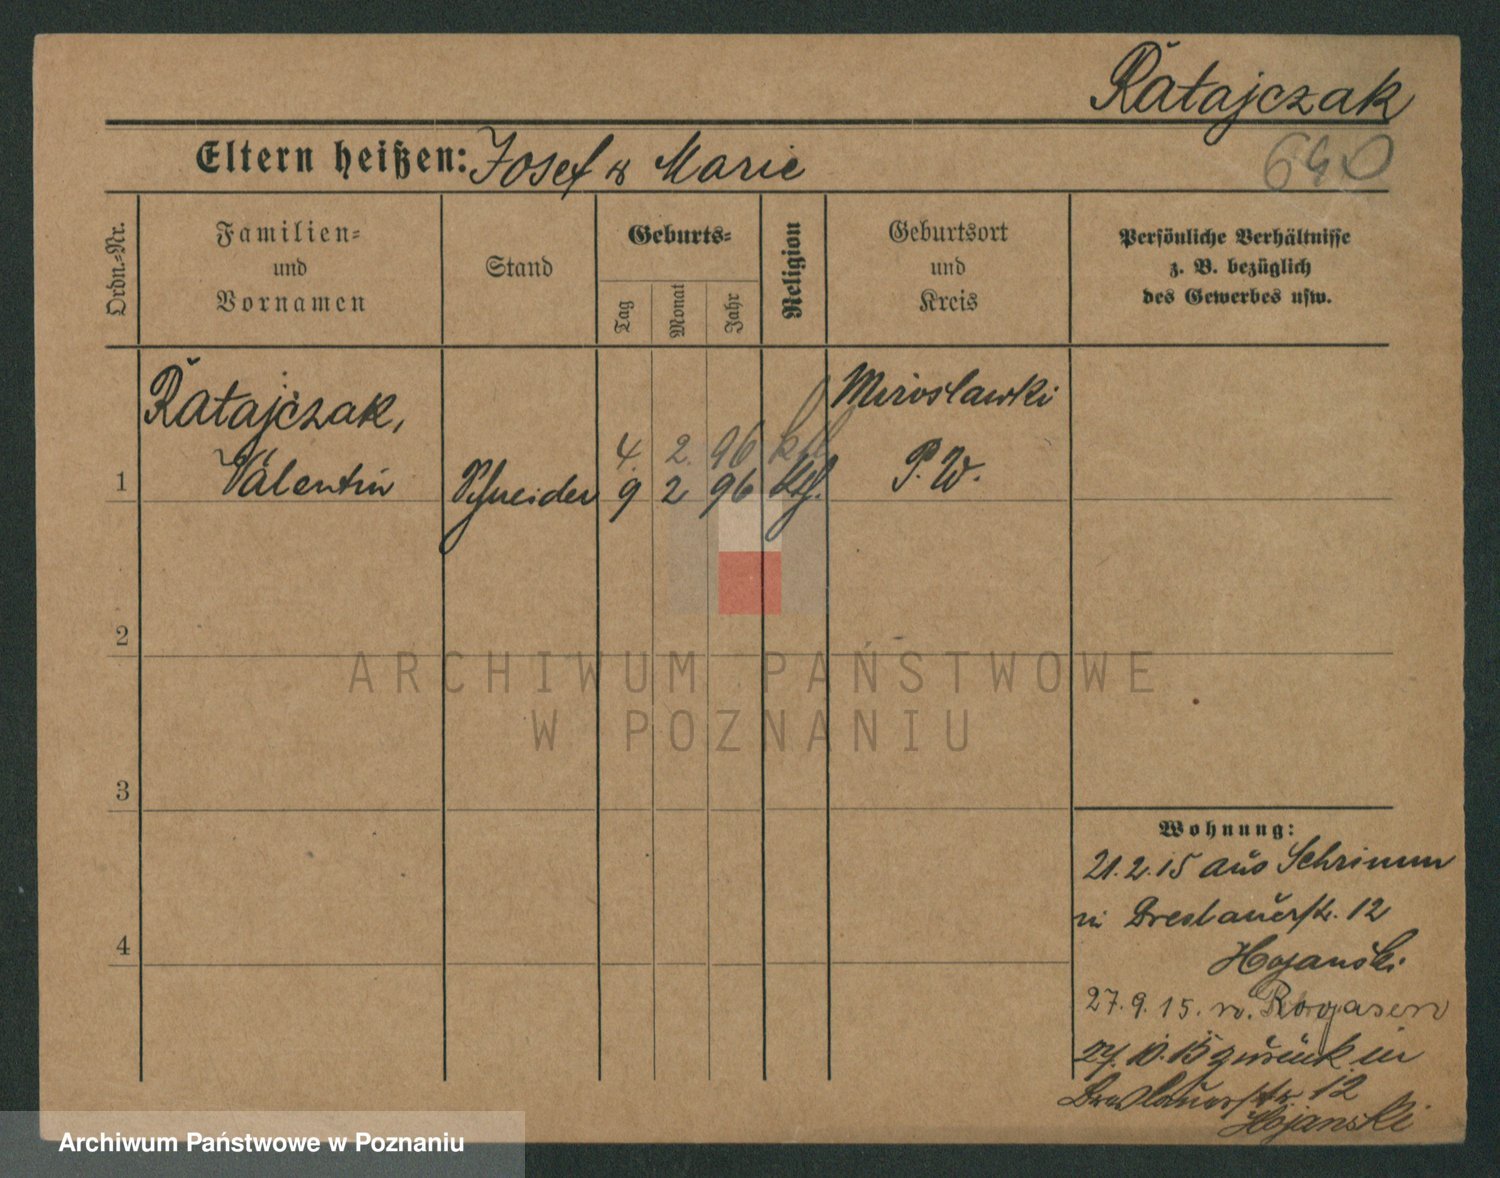 Ratajczak
Eltern heißen: Josef & Marie
640
Ordn.-Nr.
Familien-
und
Vornamen
Stand
Geburts-
Tag
Monat
Jahr
Religion
Geburtsort
und
Kreis
Persönliche Verhältnisse
z. B. bezüglich
des Gewerbes usw.
Ratajczak,
Miroslawki
4. 2. 96 kth
1 Valentin Schneider 9 2 96 kth. P. W.
2
ARCHIWUM PAŃSTWOWE
W POZNANIU
3
Wohnung:
21.2.15 aus Schrimm
in Breslauerstr. 12
Hojanski
27.9.15. n. Rogasen
27.10.15 zurück in
Breslauerstr 12
Hojanski
4
Archiwum Państwowe w Poznaniu